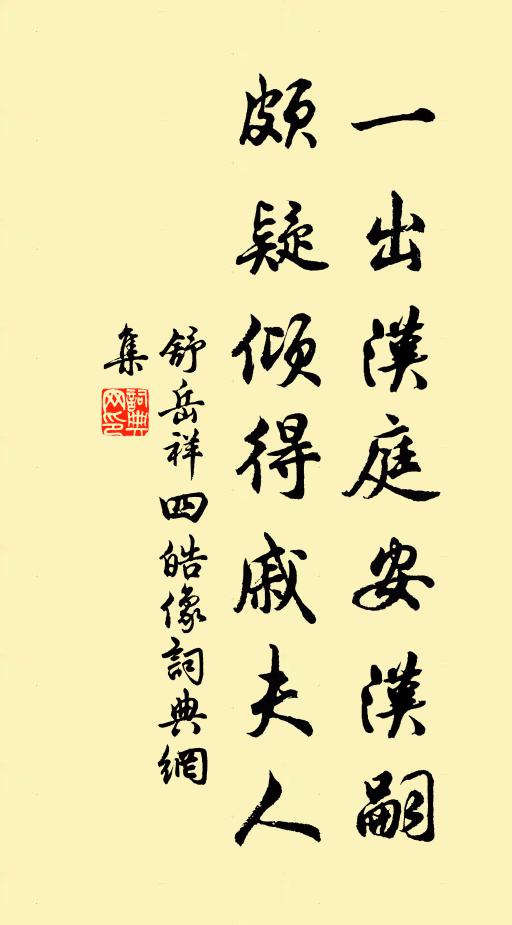 一出漢庭安漢嗣
頗疑傾得戚夫人
舒岳祥四皓像詞典網
集
詞典網印